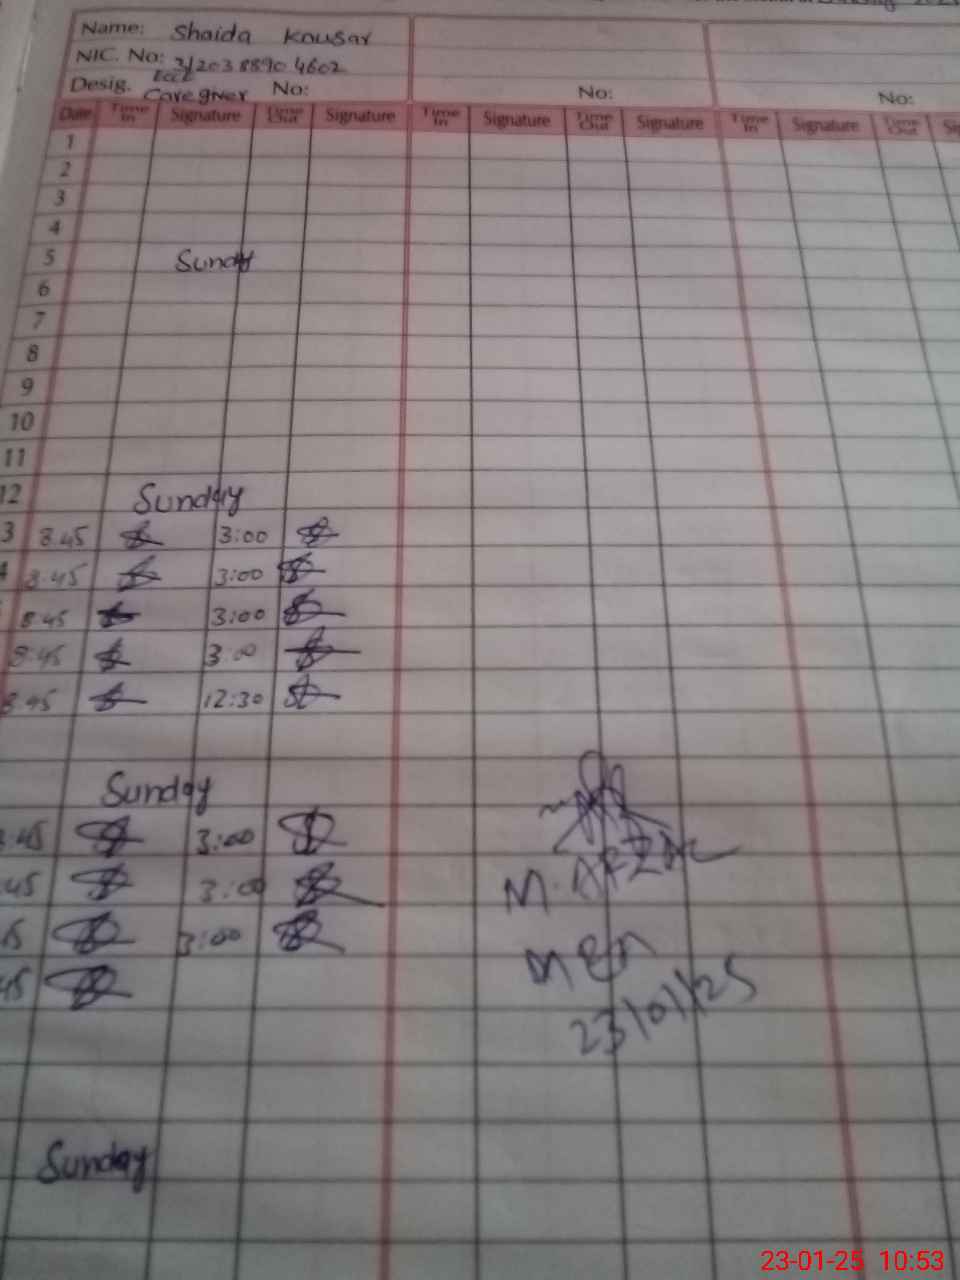 Name: Shaida Kousar
NIC. No: 3120388904602
Desig. ECCE Caregiver No: No: No:
Date Time In Signature Time Out Signature Time In Signature Time Out Signature Time In Signature Time Out
1
2
3
4
5 Sunday
6
7
8
9
10
11
12 Sunday
3 8.45 3:00
4 8.45 3:00
8.45 3:00
8.45 3:00
8.45 12:30
Sunday
:45 3:00
:45 3:00
45 3:00
45
M. AFZAL
MEA
23/01/25
Sunday
23-01-25 10:53